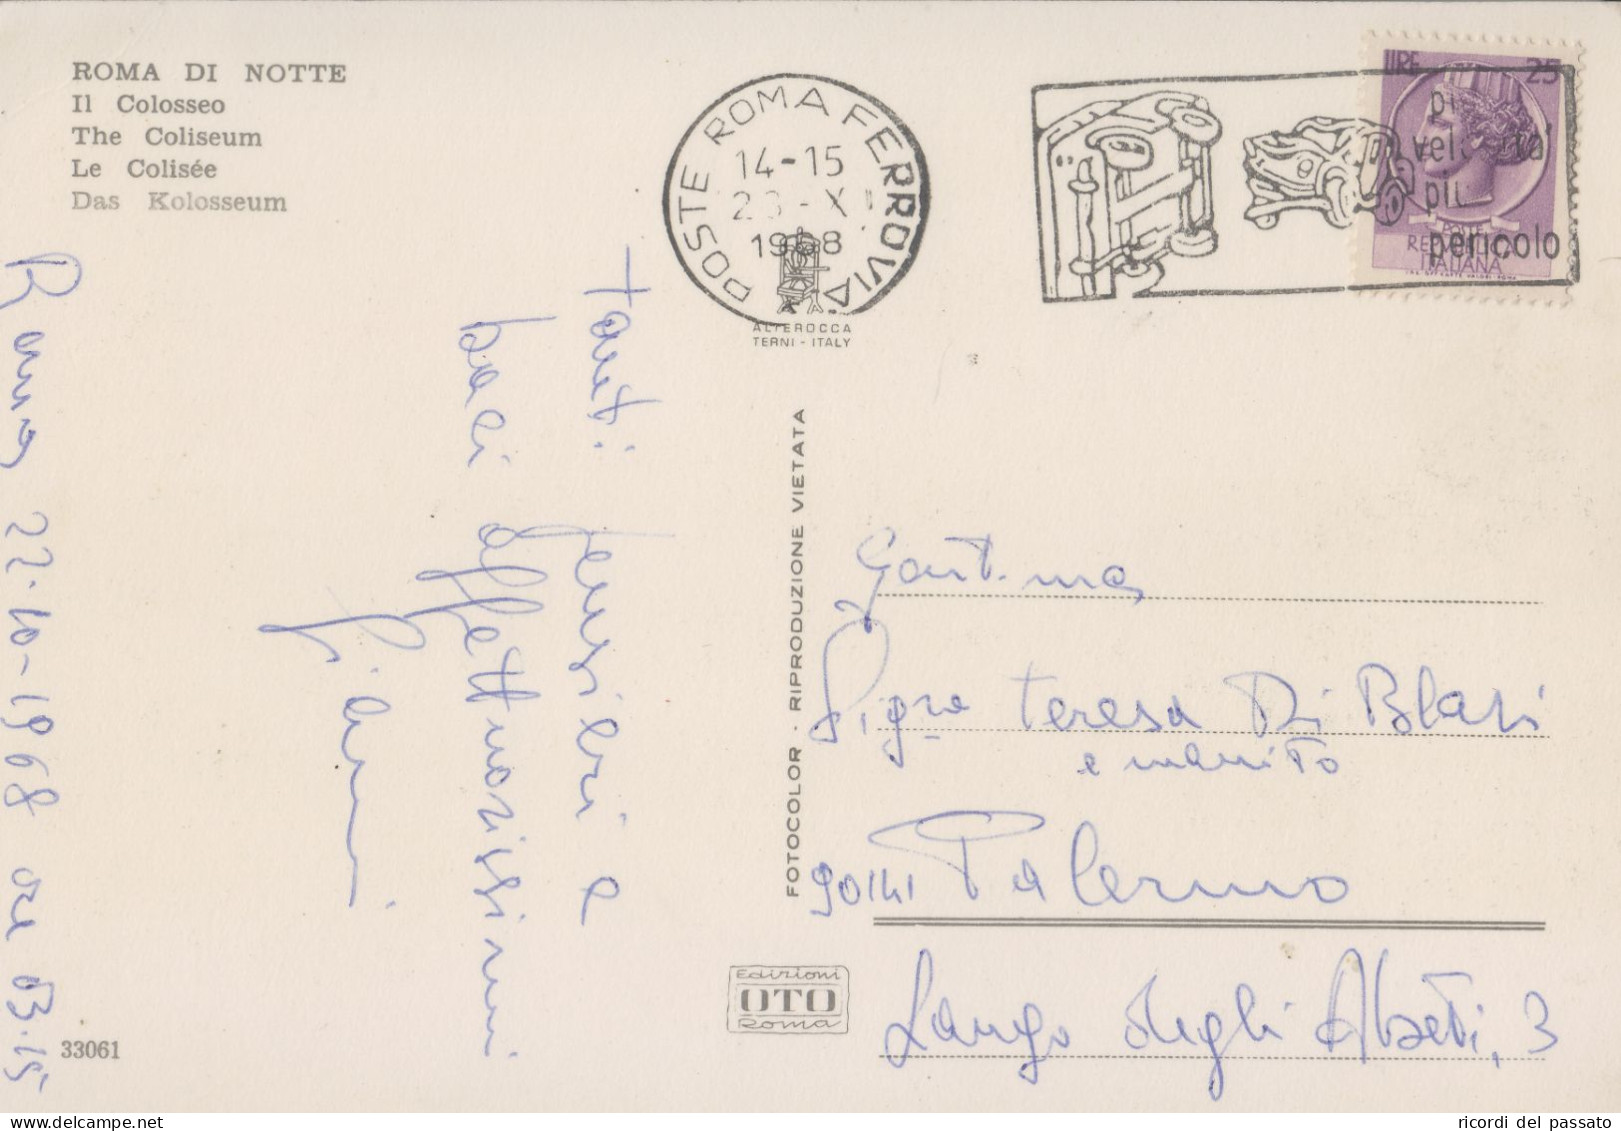 ROMA DI NOTTE
Il Colosseo
The Coliseum
Le Colisée
Das Kolosseum
POSTE ROMA FERROVIA
14-15
1968
ALTEROCCA
TERNI - ITALY
LIRE 25
più
velocità
più
pericolo
POSTE
REPUBBLICA
ITALIANA
Roma, 22-10-1968 ore 03.15
Tanti pensieri e
baci affettuosissimi
FOTOCOLOR · RIPRODUZIONE VIETATA
Gent.ma
Sig.ra Teresa Di Blasi
e marito
90141 Palermo
Largo degli Abeti, 3
Edizioni
OTO
Roma
33061
ricordi del passato